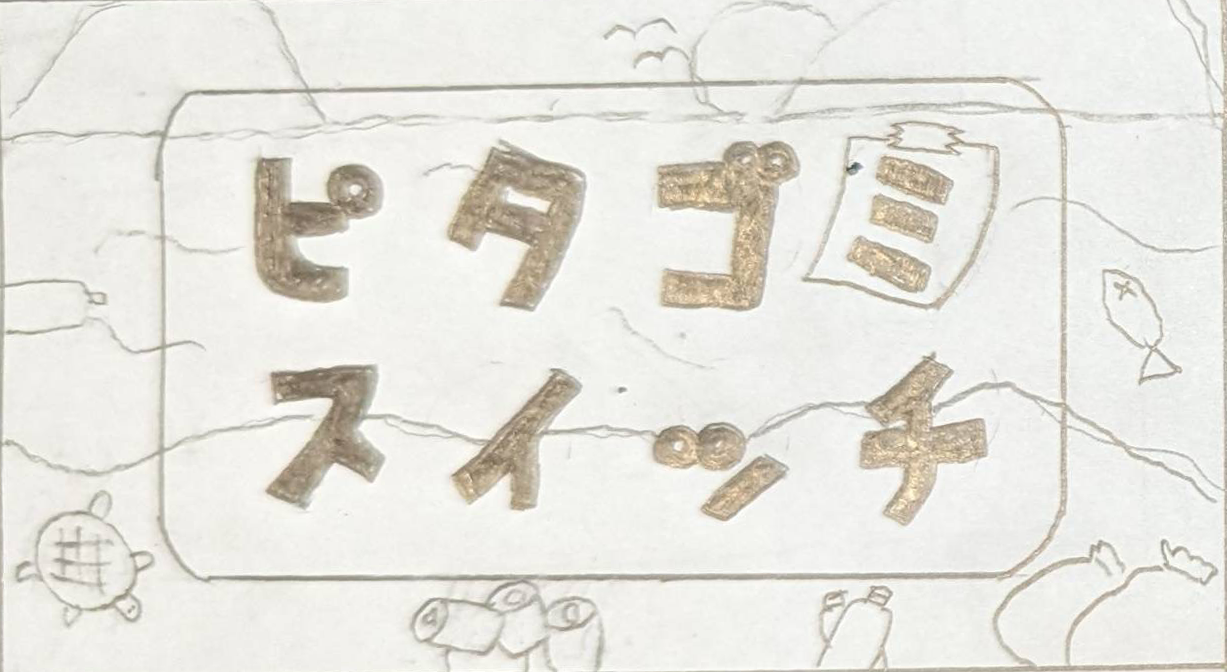 ピタゴミ
スイッチ